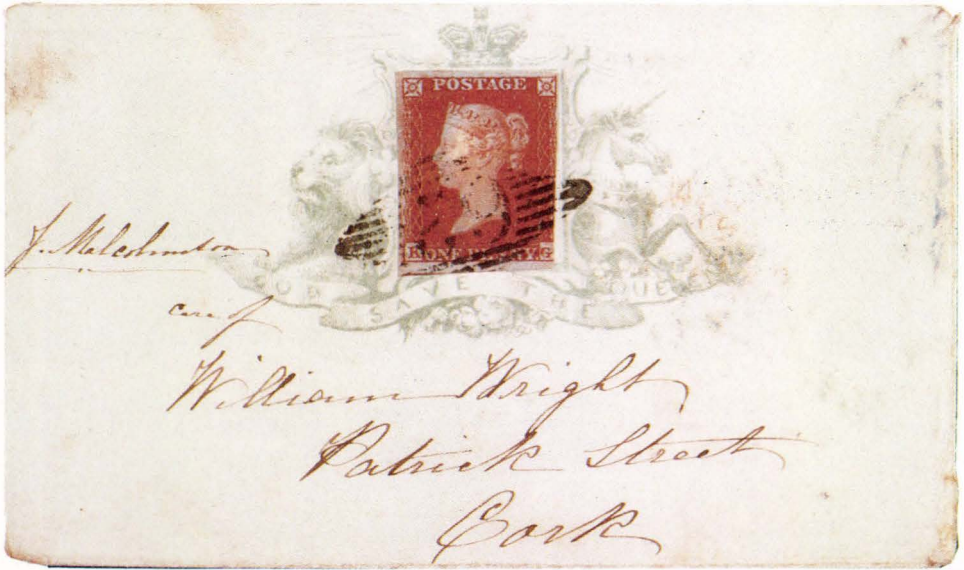 POSTAGE
K ONE PENNY. G
GOD SAVE THE QUEEN
J. Malcolmson
care of
William Wright
Patrick Street
Cork